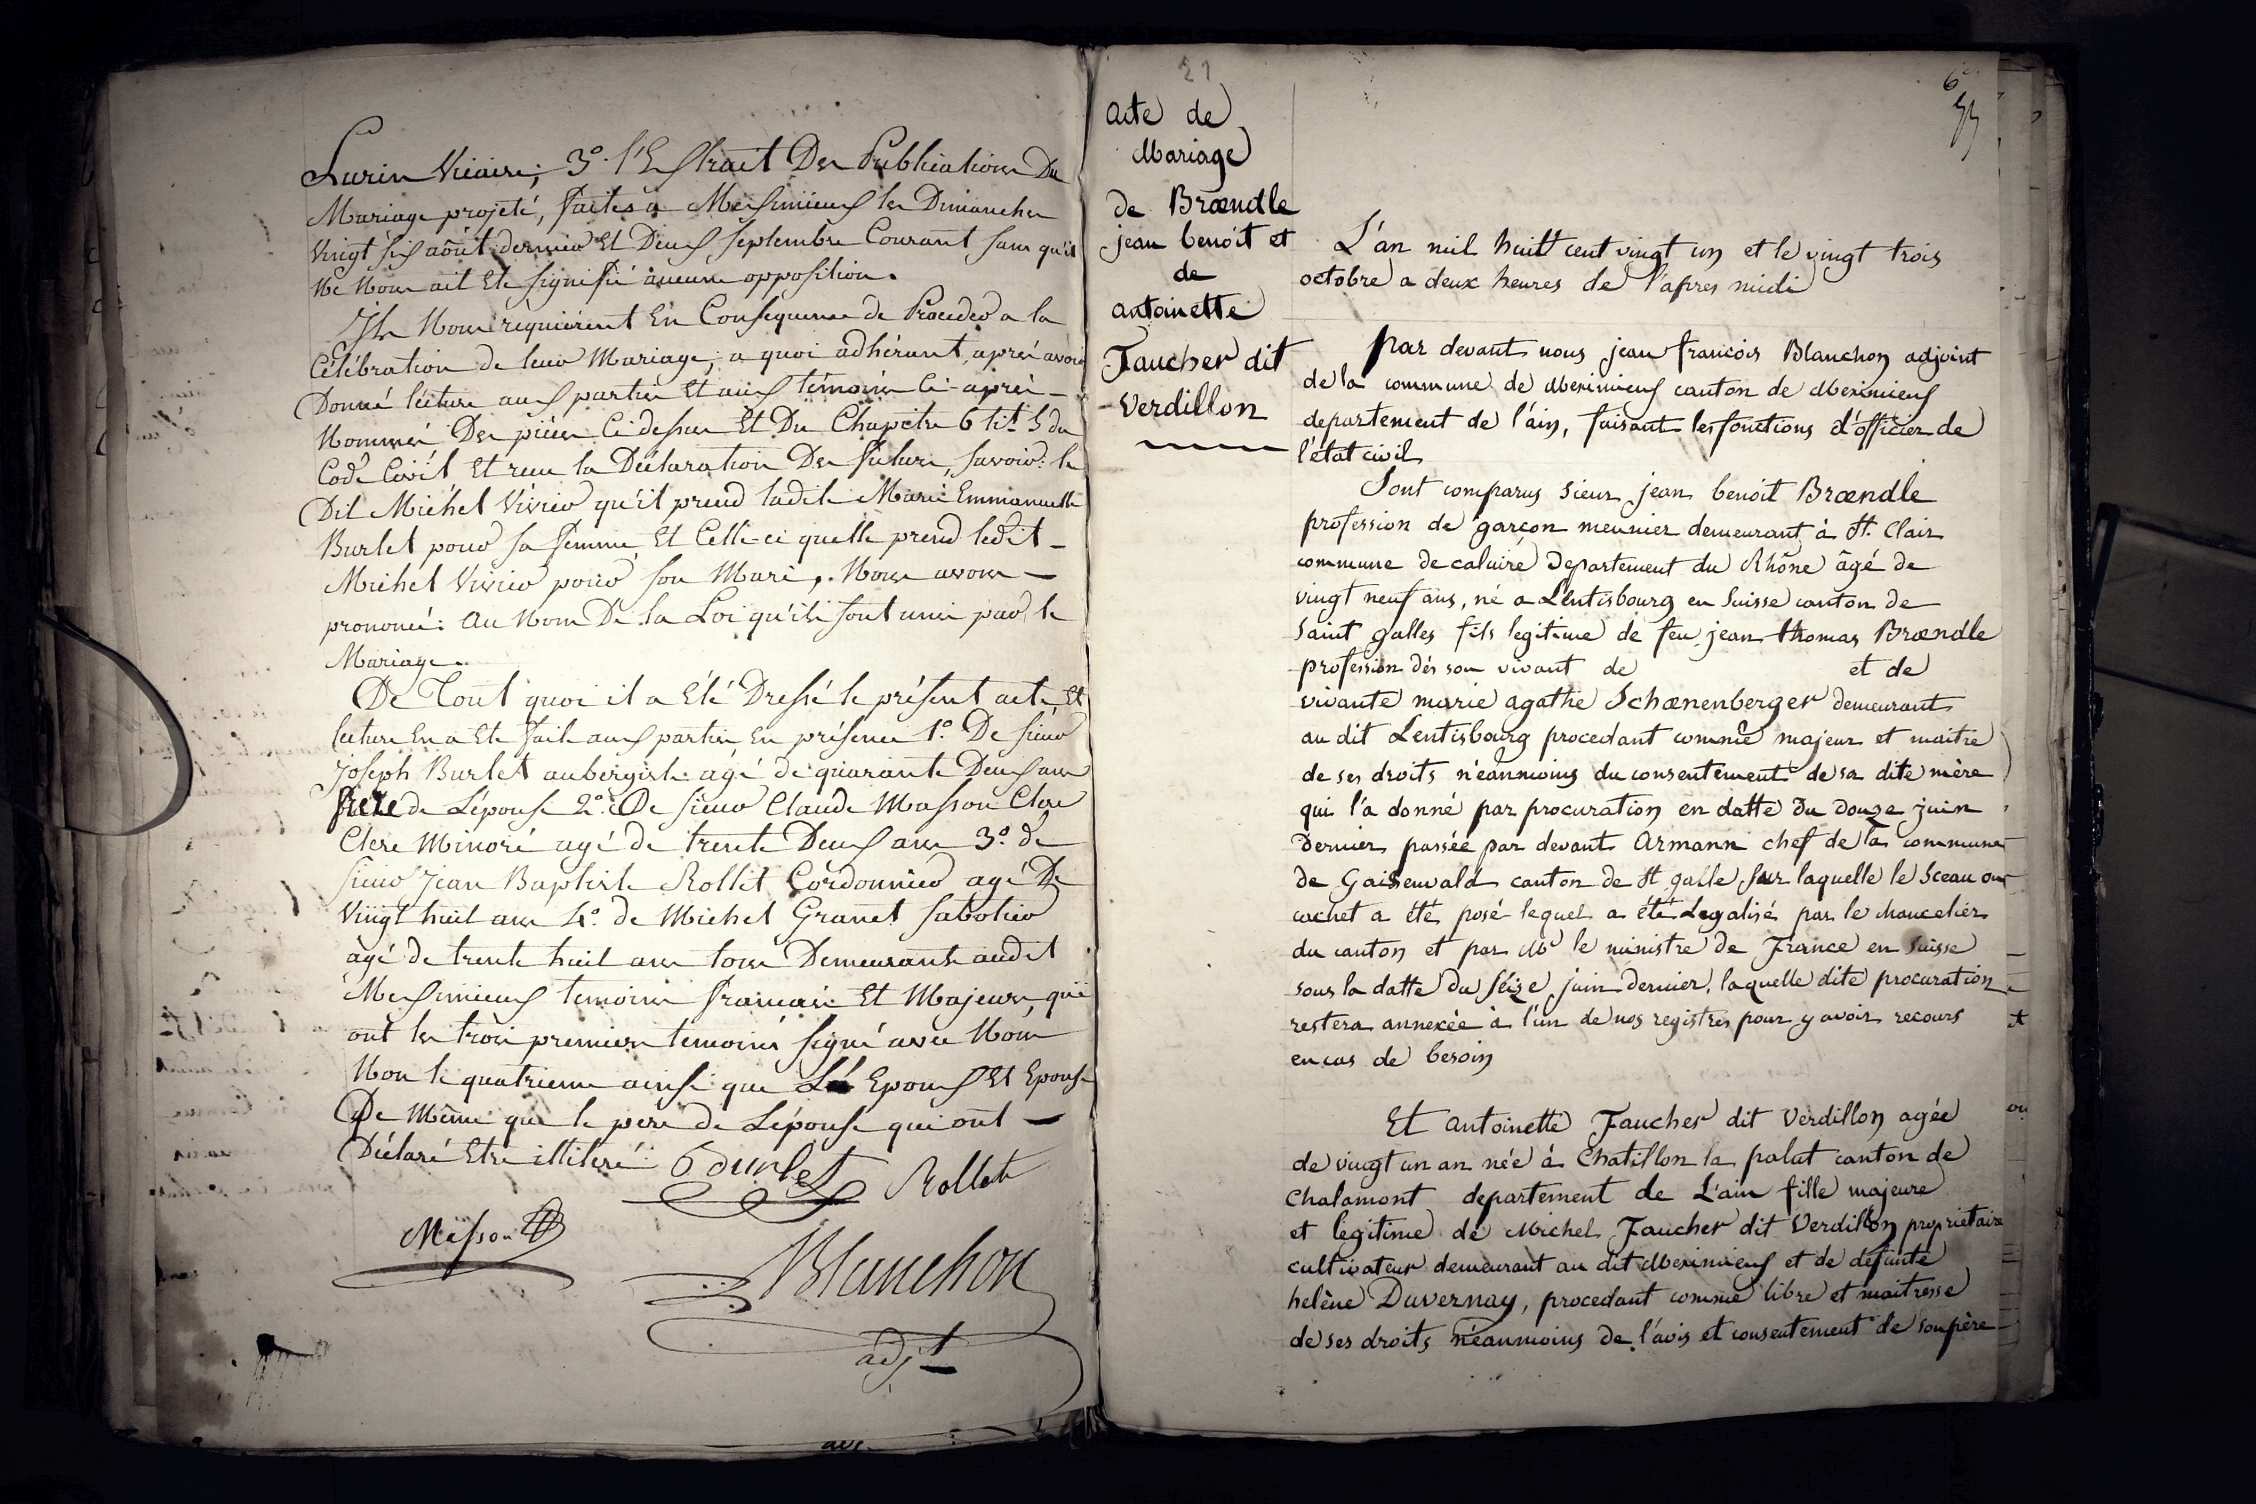 Lurin Vicaire; 3º. l'Extrait Des Publications Du
Mariage projeté, faites a Meximieux les Dimanches
Vingt six août dernier Et Deux septembre Courant sans qu'il
Ne Nous ait Eté signifié aucune opposition.
Ils Nous requièrent En Consequence de Proceder a la
Célébration de leur Mariage; a quoi adhérant, après avoir
Donné lecture aux parties Et aux témoins Ci-après
Nommés Des pièces Ci dessus Et Du Chapitre 6 tit. 5 du
Code Civil Et recu la Déclaration Des futurs, savoir: le
Dit Michel Vivier qu'il prend ladite Marie Emmanuelle
Burlet pour sa femme Et Celle-ci quelle prend ledit
Michel Vivier pour son Mari, Nous avons
prononcé: Au Nom De la Loi qu'ils sont unis par le
Mariage.
De Tout quoi il a Eté Dressé le présent acte, Et
lecture En a Eté faite aux parties En présence 1º. De sieur
Joseph Burlet aubergiste agé de quarante Deux ans
frere de Lépouse 2º. De sieur Claude Masson Clerc
Clerc Minoré agé de trente Deux ans 3º. de
sieur Jean Baptiste Rollet Cordonnier agé De
Vingt huit ans 4º. de Michel Granet sabotier
agé de trente huit ans tous Demeurants audit
Meximieux temoins francais Et Majeurs, qui
ont les trois premiers temoins signé avec Nous
Non le quatrieme ainsi que Les Epoux Et Epouse
De Même que le pere de Lépouse qui ont
Déclaré Etre illiteré
Burlet
Rollet
Masson
Blanchon
adjt
21
acte de
Mariage
de Brœndle
jean benoit et
de
antoinette
Faucher dit
Verdillon
L'an mil huitt cent vingt un et le vingt trois
octobre a deux heures de l'apres midi
par devant nous jean francois Blanchon adjoint
de la commune de Meximieux canton de Meximieux
departement de l'ain, faisant les fonctions d'officier de
l'état civil
Sont comparus sieur jean benoit Brœndle
profession de garçon meunier demeurant à St. Clair
commune de caluire Departement du Rhône âgé de
vingt neuf ans, né a Lentisbourg en Suisse canton de
Saint galles fils legitime de feu jean thomas Brœndle
profession dés son vivant de et de
vivante marie agathe Schœnenberger demeurant
au dit Lentisbourg procedant comme majeur et maitre
de ses droits n'éanmoins du consentement de sa dite mère
qui l'a donné par procuration en datte Du Douze juin
Dernier passée par devant Armann chef de la commune
de Gaisenwald canton de St galle sur laquelle le Sceau ou
cachet a été posé lequel a été Legalisé par le chancelier
du canton et par Mr le ministre de France en Suisse
sous la datte Du séize juin dernier, laquelle dite procuration
restera annexée à l'un de nos registres pour y avoir recours
en cas de besoin
Et antoinette Faucher dit Verdillon agée
de vingt un an née à Chatillon la palut canton de
Chalamont departement de L'ain fille majeure
et legitime de Michel Faucher dit Verdillon proprietaire
cultivateur demeurant au dit Meximieux et de défunte
helène Duvernay, procedant comme libre et maitresse
de ses droits n'éanmoins de l'avis et consentement de son père